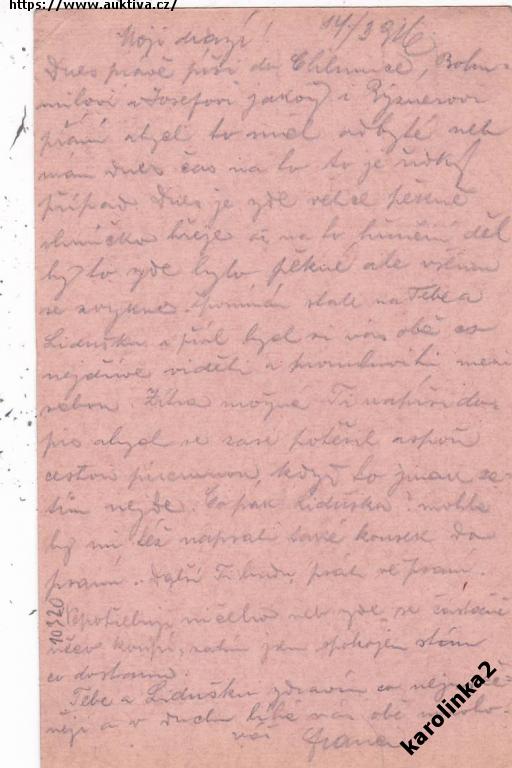 https://www.auktiva.cz/
14/3 916
Moji drazí!
Dnes právě píši do Chlumce, Bohu-
milovi a Josefovi jakož i
přání abych to měl odbyté neb
mám dnes čas na to to je řídký
případ. Dnes je zde velice pěkně
sluníčko hřeje až na to hřmění děl
by to zde bylo pěkné ale všemu
se zvykne. Vzpomínám stále na Tebe a
Lidušku a přál bych si vás obě co
nejdříve viděti a promluviti mezi
sebou. Zítra možná Ti napíši do-
pis abych se zase potěšil aspoň
cestou písemnou, když to jinak za-
tím nejde. Copak Liduška? mohla
by mi též napsati také kousek do
psaní. Další Ti budu psáti ve psaní.
Nepotřebuji ničeho neb zde se částečně
něco koupí, jsem spokojen s tím
co dostanu.
Tebe a Lidušku zdravím co nejsrdeč-
něji a v duchu líbá vás obě
váš Franc
10320
karolinka2